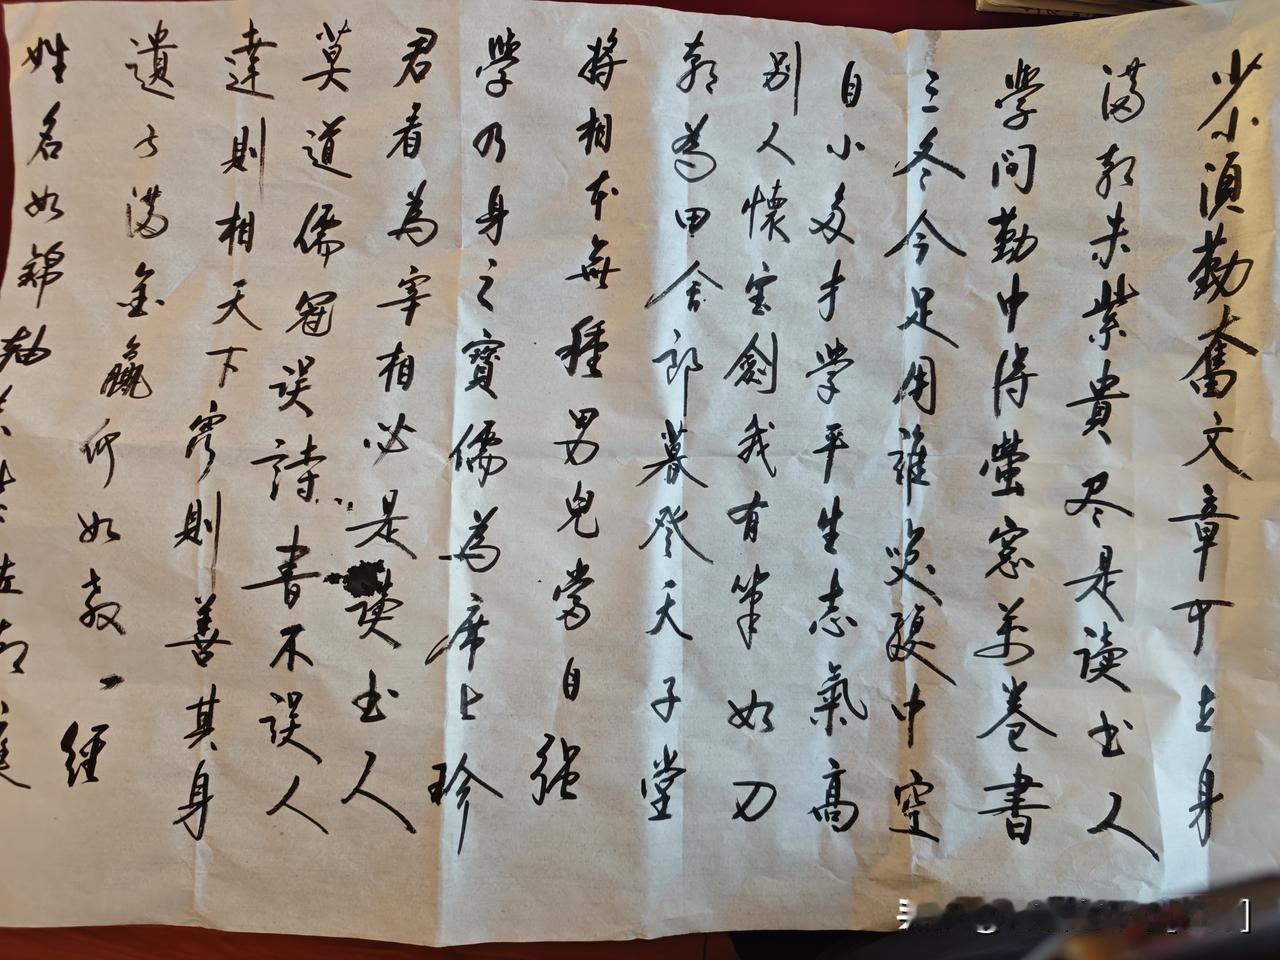 少小須勤奮文章可立身
滿朝朱紫貴尽是读书人
學問勤中得螢窓萬卷書
三冬今足用誰笑腹中空
自小多才学平生志氣高
别人懷宝劍我有筆如刀
朝為田舍郎暮登天子堂
將相本無種男兒當自强
學乃身之寶儒為席上珍
君看為宰相必是读书人
莫道儒冠误詩書不误人
達則相天下窮則善其身
遺子滿金籯何如教一經
姓名如錦